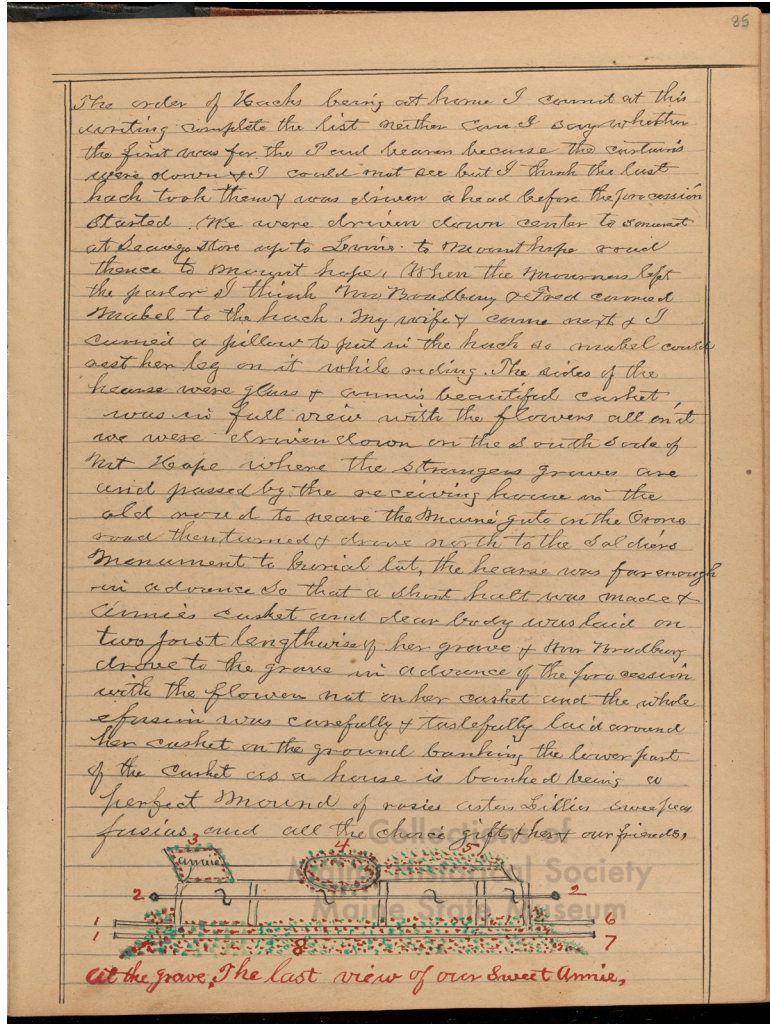 85
The order of Hacks being at home I cannot at this
writing complete the list neither can I say whether
the first was for the Paul bearers because the curtains
were down & I could not see but I think the last
hack took them & was driven ahead before the procession
Started. We were driven down center to Somerset
at Seaveys Store up to to Mount hope road
thence to mount hope, When the Mourners left
the parlor I think Mrs Bradbury & Fred carried
Mabel to the hack. My wife & came next & I
carried a pillow to put in the hack so mabel could
rest her leg on it while riding. The sides of the
hearse were glass & annies beautiful casket,
was in full view with the flowers all on it
we were driven down on the South Side of
Mt Hope where the strangers graves are
and passed by the receiving house in the
old road to neare the Maine gate on the Orono
road then turned & drove north to the Soldiers
Monument to burial lot, the hearse was far enough
in advance so that a short halt was made &
Annies casket and dear body was laid on
two joist lengthwise of her grave & Bradbury
drove to the grave in advance of the procession
with the flowers not on her casket and the whole
efusion was carefully & tastefully laid around
her casket on the ground banking the lower part
of the casket as a house is banked being a
perfect Mound of rosies asters Lillies Sweet peas
fusias and all the choice gifts & her & our friends,
3 4 5
annie
2 2
1 6
1 7
8
At the grave, The last view of our Sweet Annie,
Collections of
Maine Historical Society
Maine State Museum